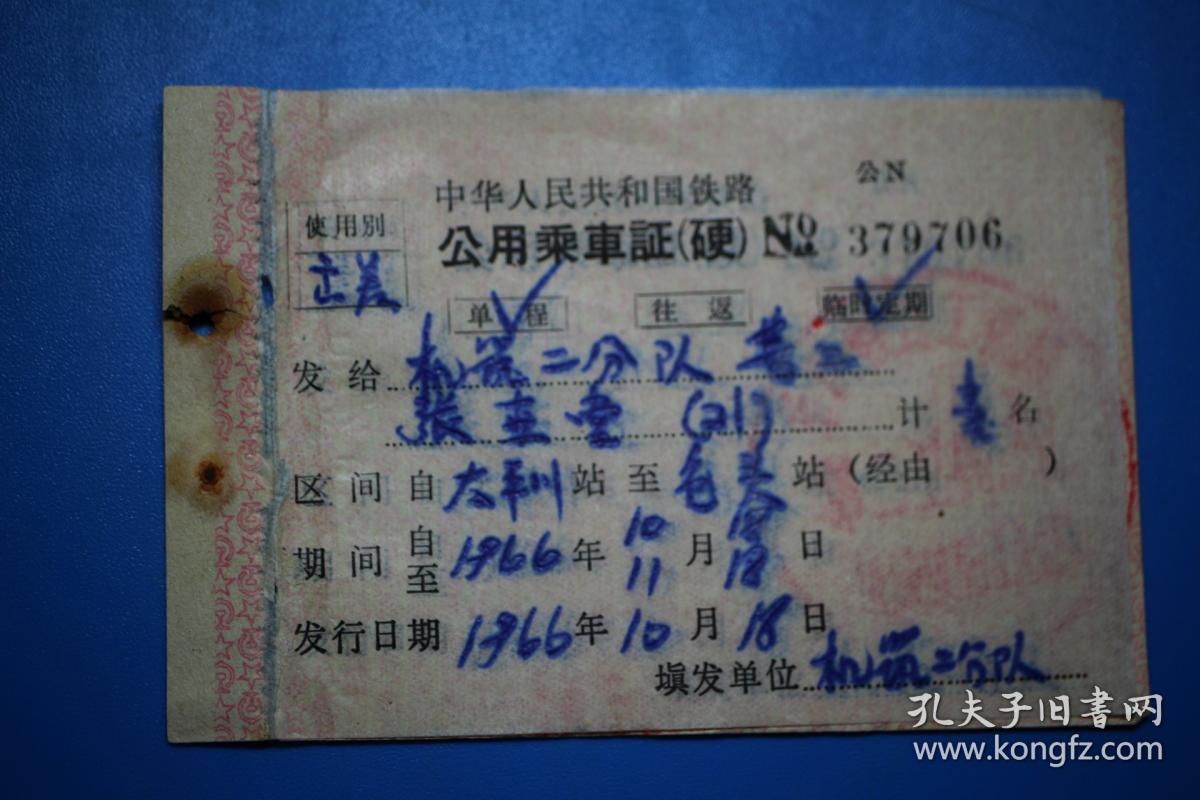 公N
中华人民共和国铁路
公用乘車証(硬) № 379706
使用别
单程 往返 临时定期
发给 机筑二分队
张 计 壹 名
区间 自 太平川 站 至 包头 站 (经由 )
期间 自 1966 年 10 月 18 日
至 11 18
发行日期 1966年 10 月 18 日
填发单位 机筑二分队
孔夫子旧書网
www.kongfz.com